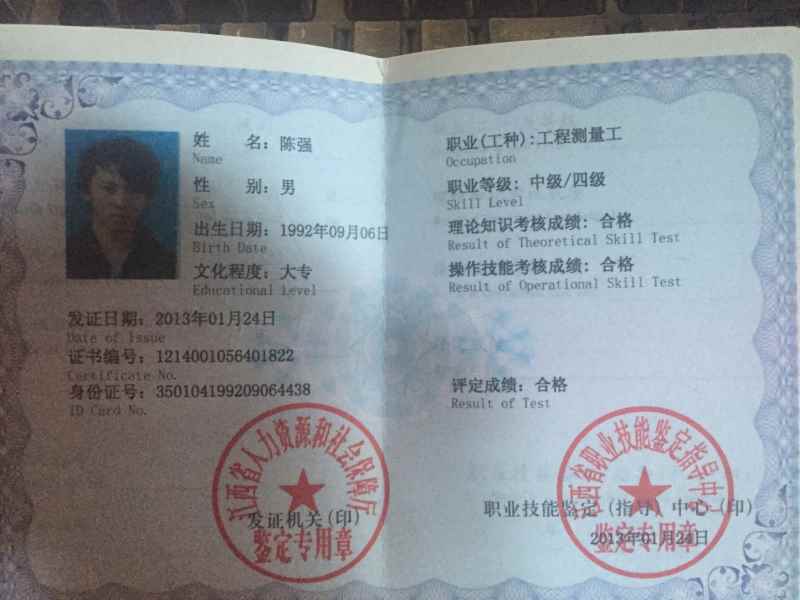 姓 名：陈强
Name
性 别：男
Sex
出生日期：1992年09月06日
Birth Date
文化程度：大专
Educational Level
发证日期：2013年01月24日
Date of Issue
证书编号：1214001056401822
Certificate No.
身份证号：350104199209064438
ID Card No.
江西省人力资源和社会保障厅
发证机关(印)
鉴定专用章
职业(工种)：工程测量工
Occupation
职业等级：中级/四级
Skill Level
理论知识考核成绩：合格
Result of Theoretical Skill Test
操作技能考核成绩：合格
Result of Operational Skill Test
评定成绩：合格
Result of Test
江西省职业技能鉴定指导中心
职业技能鉴定(指导)中心(印)
2013年01月24日
鉴定专用章